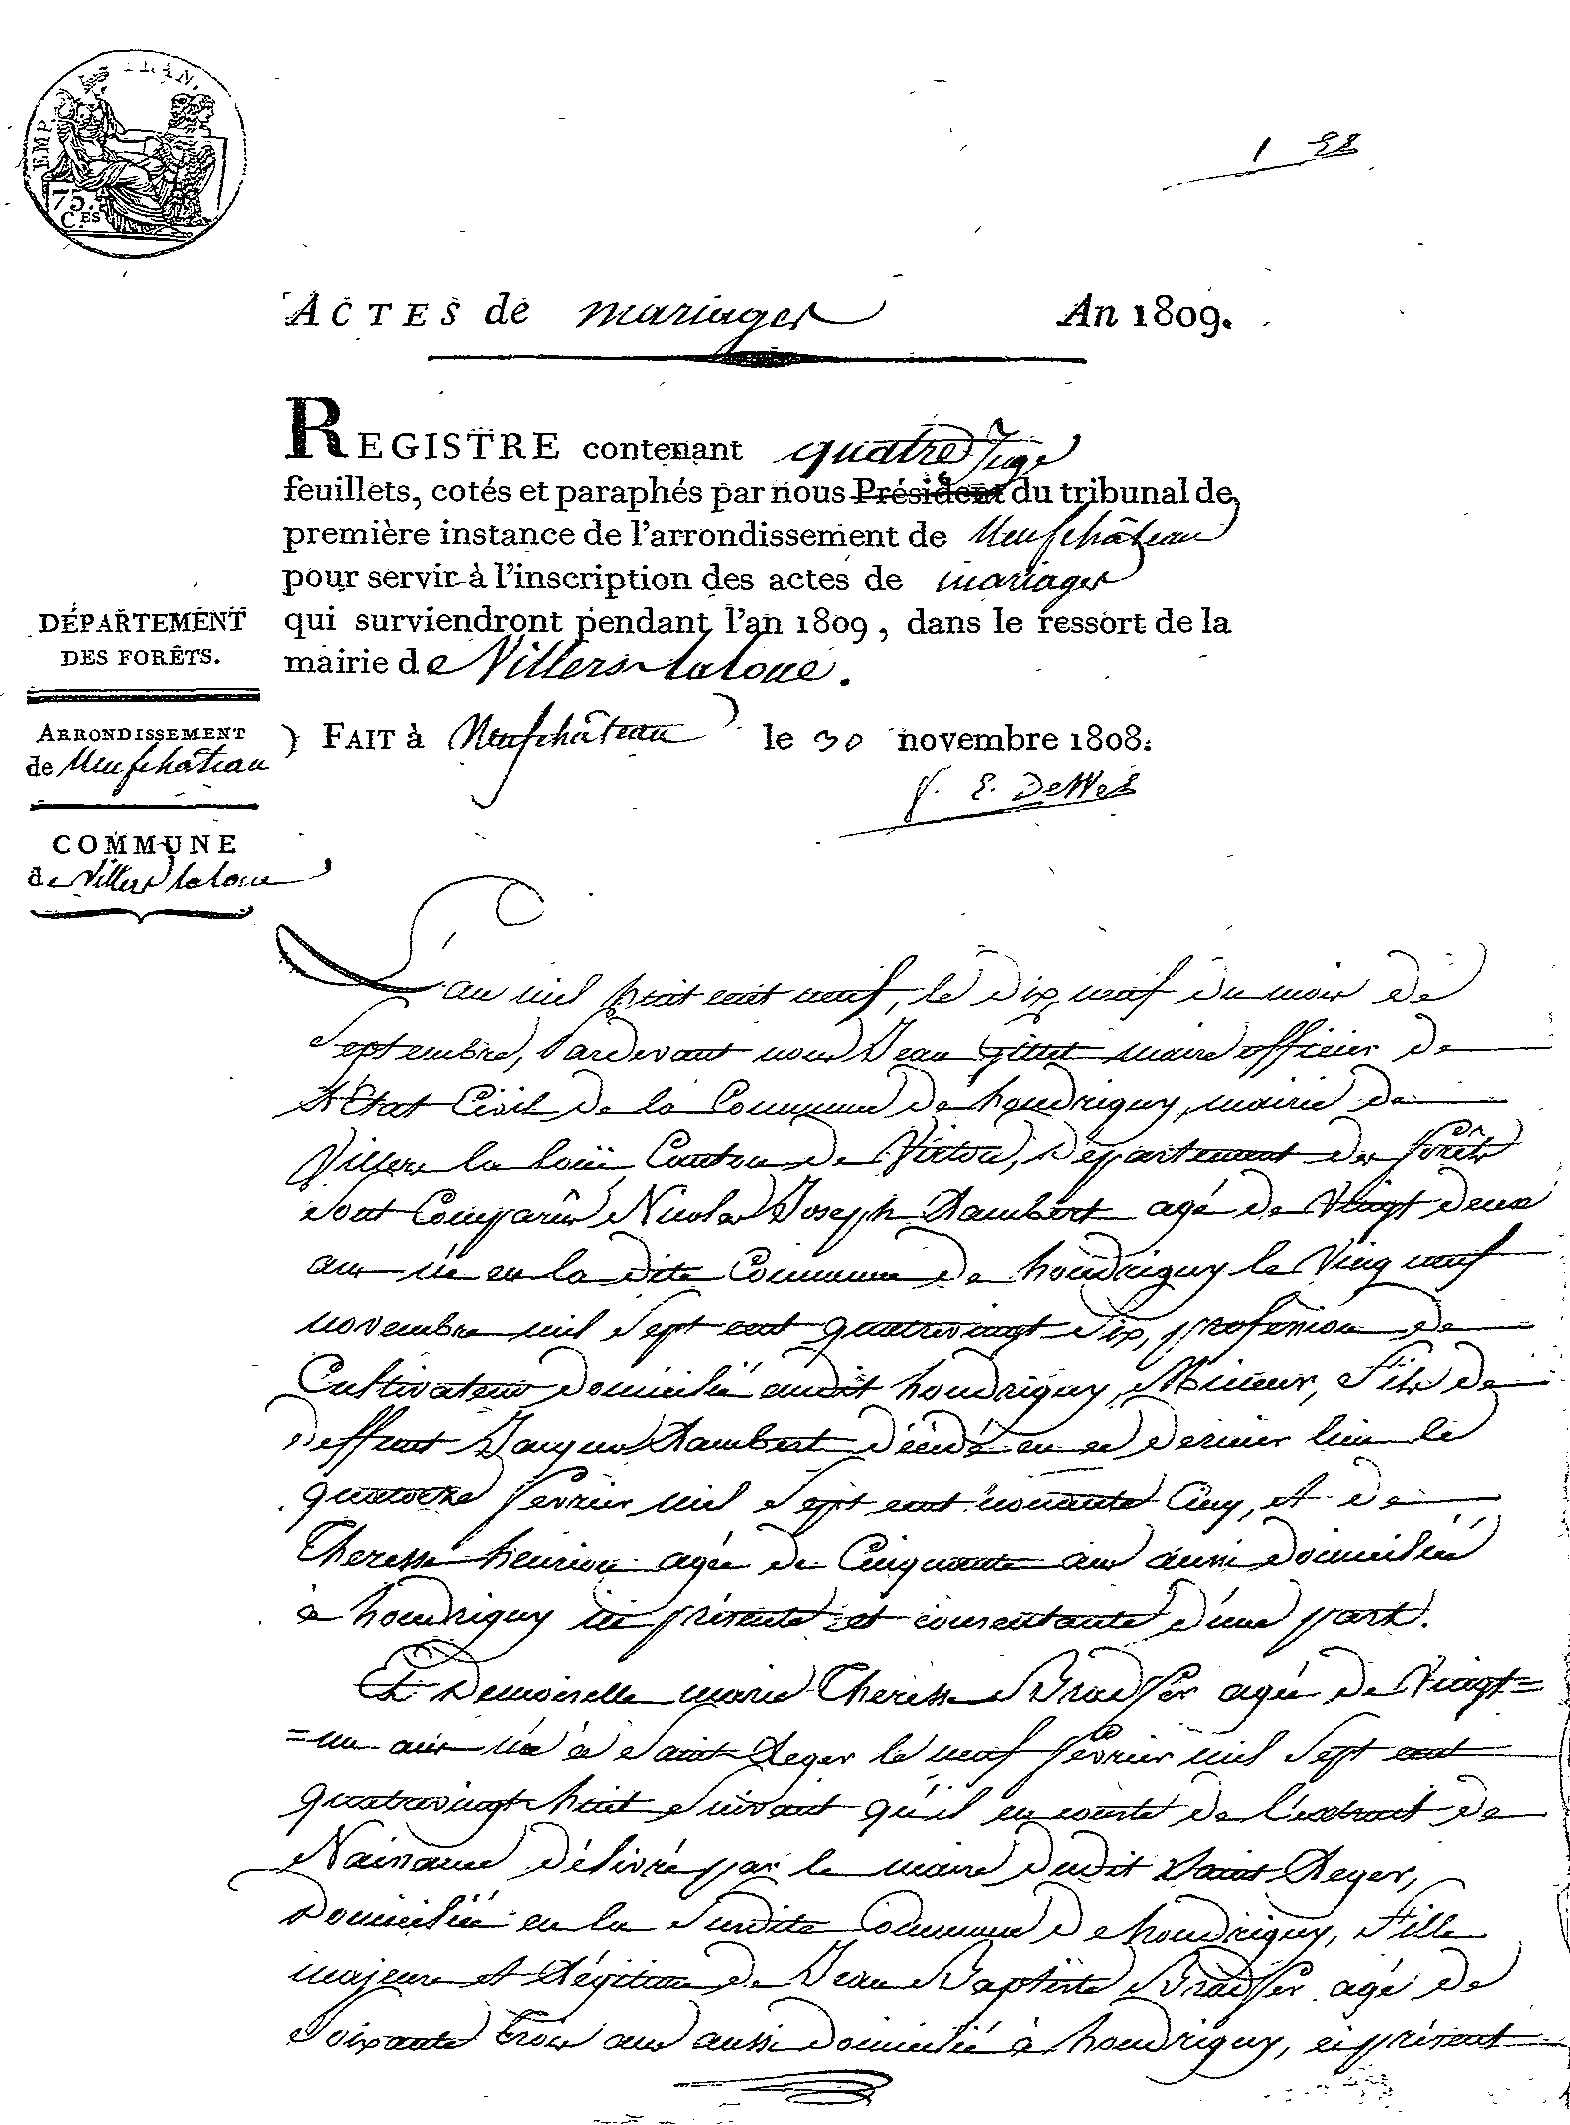 EMP. FRAN.
75. C.ES
1
ACTES de mariages An 1809.
REGISTRE contenant quatre Juge
feuillets, cotés et paraphés par nous Président du tribunal de
première instance de l'arrondissement de Neufchâteau
pour servir à l'inscription des actes de mariages
qui surviendront pendant l'an 1809, dans le ressort de la
mairie de Villers laloue.
FAIT à Neufchâteau le 30 novembre 1808.
DÉPARTEMENT
DES FORÊTS.
ARRONDISSEMENT
de Neufchâteau
COMMUNE
de Villers laloue
L'an mil huit cent neuf, le dix neuf du mois de
Septembre, Pardevant nous Jean gillet maire officier de
L'Etat Civil de la Commune de houdrigny, mairie de
Villers la loüe Canton de Virton, Département des forêts
sont Comparûs Nicolas Joseph Lambert agé de Vingt deux
ans né en la dite Commune de houdrigny le Vingt neuf
novembre mil Sept cent quatrevingt Six, profession de
Cultivateur domicilié audit houdrigny, Mineur, Fils de
deffunt Jacques Lambert décédé en ce dernier lieu le
quatorze fevrier mil Sept cent nonante Cinq, et de
Theresse henrion agée de Cinquante ans aussi domiciliée
à houdrigny ici présente et consentante d'une part.
Et Demoiselle marie Theresse agée de Vingt=
=un ans née à Saint Leger le neuf fevrier mil Sept cent
quatrevingt huit Suivant qu'il en conste de l'extrait de
Naissance délivré par le maire dudit Saint Leger,
Domiciliée en la Susdite Commune De houdrigny, Fille
majeure et Légitime de Jean Baptiste agé de
Soixante Trois ans aussi domicilié à houdrigny, ci présent